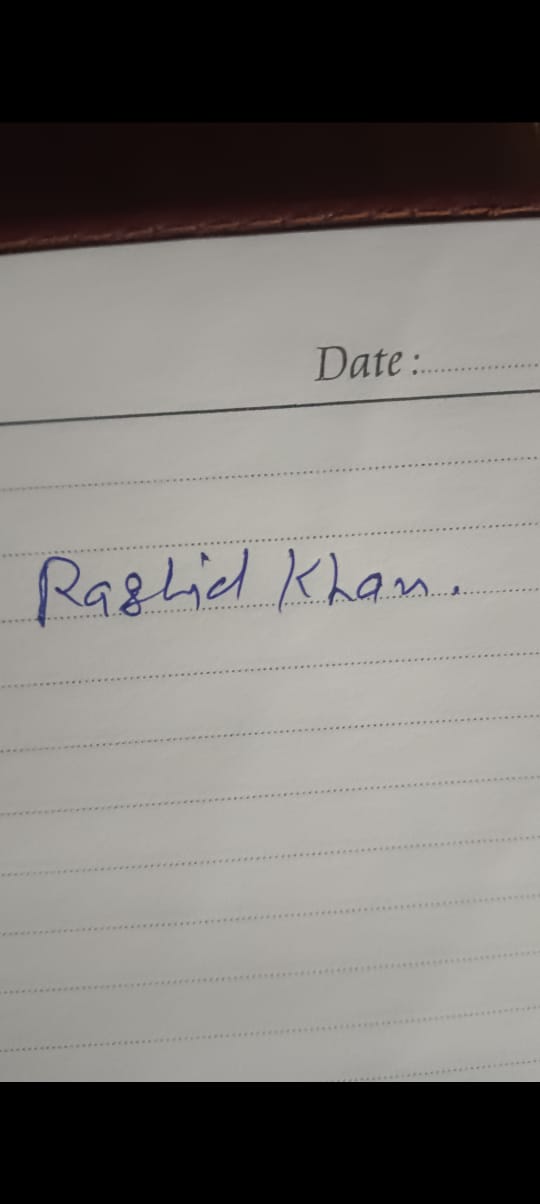 Date :....................
Rashid Khan.